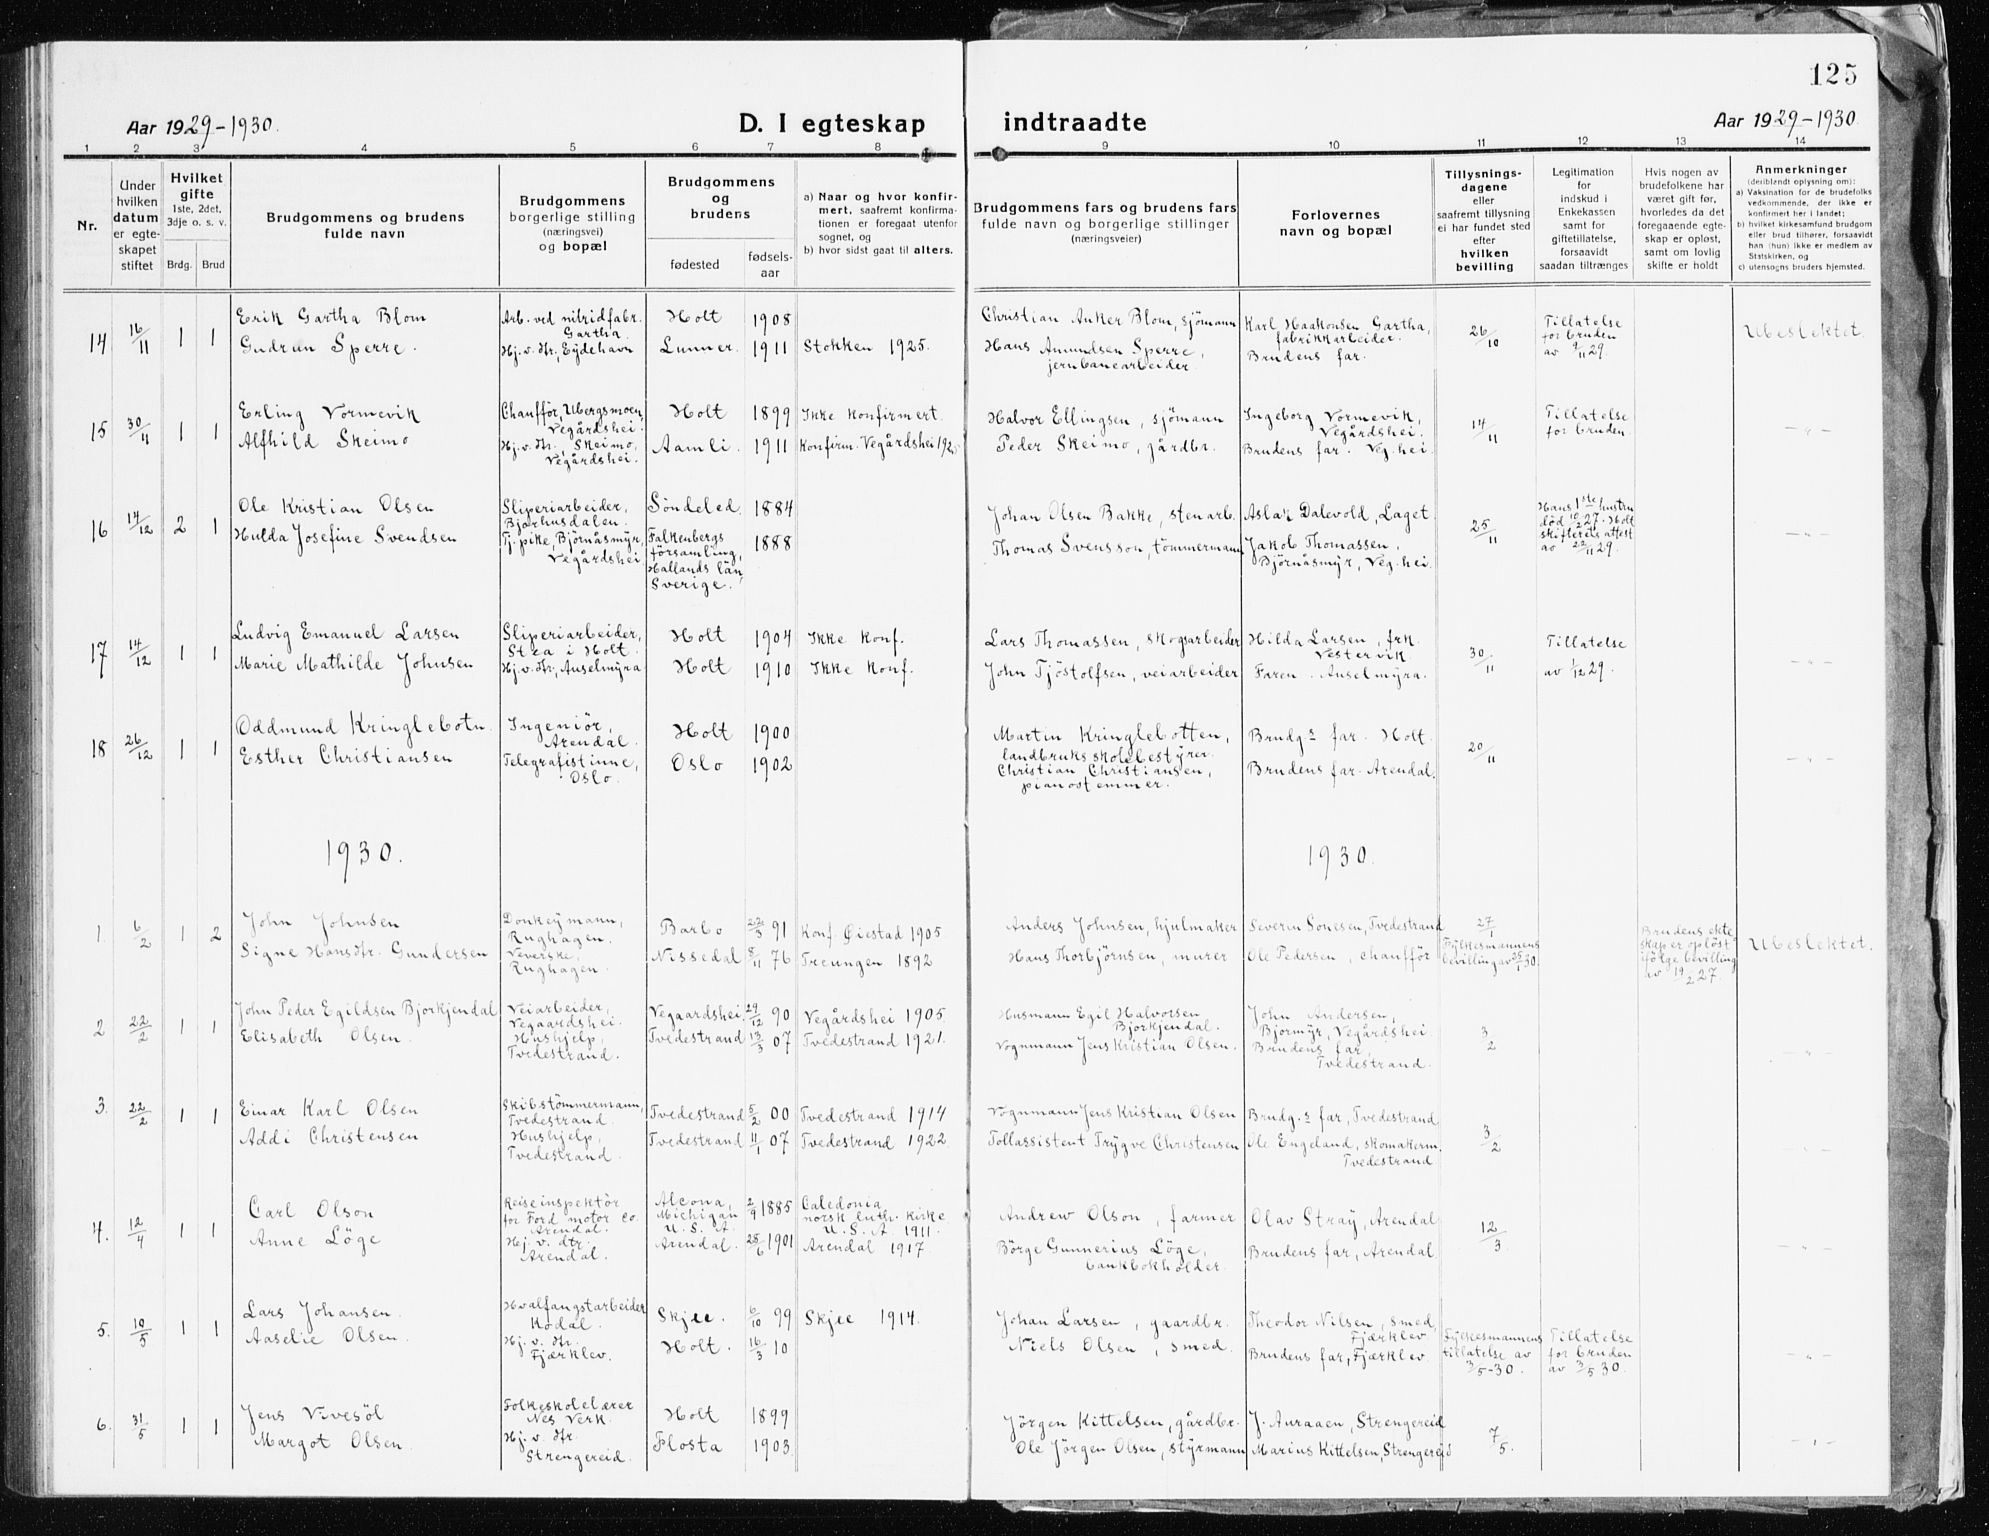 125
Aar 1929-1930.
D. I egteskap indtraadte
Aar 1929-1930.
1 2 3 4 5 6 7 8 9 10 11 12 13 14
Nr.
Under hvilken datum er egteskapet stiftet
Hvilket gifte 1ste, 2det, 3dje o. s. v.
Brdg. Brud
Brudgommens og brudens fulde navn
Brudgommens borgerlige stilling (næringsvei) og bopæl
Brudgommens og brudens
fødested
fødselsaar
a) Naar og hvor konfirmert, saafremt konfirmationen er foregaat utenfor sognet, og
b) hvor sidst gaat til alters.
Brudgommens fars og brudens fars fulde navn og borgerlige stillinger (næringsveier)
Forlovernes navn og bopæl
Tillysningsdagene eller saafremt tillysning ei har fundet sted efter hvilken bevilling
Legitimation for indskud i Enkekassen samt for giftetillatelse, forsaavidt saadan tiltrænges
Hvis nogen av brudefolkene har været gift før, hvorledes da det foregaaende egteskap er opløst, samt om lovlig skifte er holdt
Anmerkninger (deriblendt oplysning om):
a) Vaksination for de brudefolks vedkommende, der ikke er konfirmert her i landet;
b) hvilket kirkesamfund brudgom eller brud tilhører, forsaavidt han (hun) ikke er medlem av Statskirken, og
c) utensogns bruders hjemsted.
14 16/11 1 1
Erik Gartha Blom
Gudrun Sperre.
Arb. ved nitridfabr. Gartha
Hj.v. dtr, Eydehavn
Holt 1908
Lunner. 1911 Stokken 1925.
Christian Anker Blom, sjömann
Hans Amundsen Sperre, jernbanearbeider.
Karl Haakonsen Gartha, fabrikkarbeider.
Brudens far.
26/10
Tillatelse for bruden av 9/11 29.
Ubeslektet.
15 30/11 1 1
Erling Vormevik
Alfhild Skeimo
Chaufför, Ubergsmoen, Vegårdshei.
Hj.v. dtr. Skeimo, Vegårdshei.
Holt 1899 Ikke konfirmert.
Aamli. 1911 Konfirm. Vegårdshei
Halvor Ellingsen, sjömann
Peder Skeimo, gårdbr.
Ingeborg Vormevik, Vegårdshei.
Brudens far. Veg.hei.
14/11
Tillatelse for bruden.
- " -
16 14/12 2 1
Ole Kristian Olsen
Hulda Josefine Svendsen
Sliperiarbeider, Bjorhusdalen.
Tj.pike, Björnåsmyr, Vegårdshei
Söndeled. 1884
Falkenbergs församling, Hallands län, Sverige. 1888
Johan Olsen Bakke, stenarb.
Thomas Svensson, tömmermann
Aslak Dalevold, Laget
Jakob Thomassen, Björnåsmyr, Veg.hei.
25/11
Hans 1ste hustru död 10/2 27. Holt skifterets attest av 22/11 29.
- " -
17 14/12 1 1
Ludvig Emanuel Larsen
Marie Mathilde Johnsen
Sliperiarbeider, Stea i Holt.
Hj.v. dtr, Anselmyra
Holt 1904 Ikke konf.
Holt 1910 Ikke konf.
Lars Thomassen, skogsarbeider
John Tjöstolfsen, veiarbeider
Hilda Larsen, frk. Vestervik
Faren. Anselmyra.
30/11
Tillatelse av 1/12 29.
- " -
18 26/12 1 1
Oddmund Kringlebotn.
Esther Christiansen
Ingeniör, Arendal.
Telegrafistinne, Oslo.
Holt 1900
Oslo 1902
Martin Kringlebotten, landbruksskolebestyrer.
Christian Christiansen, pianostemmer.
Brudg.s far. Holt.
Brudens far. Arendal.
20/11
- " -
1930.
1930.
1. 6/2 1 2
John Johnsen
Signe Hansdtr. Gundersen
Donkeymann, Rughagen.
Veverske, Rughagen.
Barbo 22/3 91 Konf. Øiestad 1905
Nissedal 5/11 76 Treungen 1892
Anders Johnsen, hjulmaker
Hans Thorbjörnsen, murer
Severin Sonesen, Tvedestrand
Ole Pedersen, chaufför
27/1 Fylkesmannens bevilling av 25/1 30.
Brudens ekteskap er opløst ifölge bevilling av 19/2 27.
Ubeslektet.
2 22/2 1 1
John Peder Egildsen Bjorkjendal
Elisabeth Olsen.
Veiarbeider, Vegaardshei.
Hushjelp, Tvedestrand.
Vegaardshei 29/12 90 Vegårdshei 1905
Tvedestrand 13/3 07 Tvedestrand 1921.
Husmann Egil Halvorsen Bjorkjendal.
Vognmann Jens Kristian Olsen.
John Andersen, Bjormyr, Vegårdshei
Brudens far, Tvedestrand.
3/2
- " -
3. 22/2 1 1
Einar Karl Olsen
Addi Christensen
Skibstömmermann, Tvedestrand.
Hushjelp, Tvedestrand.
Tvedestrand 5/2 00 Tvedestrand 1914
Tvedestrand 11/1 07 Tvedestrand 1922
Vognmann Jens Kristian Olsen
Tollassistent Trygve Christensen
Brudg.s far, Tvedestrand
Ole Engeland, skomakerm. Tvedestrand
3/2
- " -
4. 12/4 1 1
Carl Olson
Anne Löge
Reiseinspektör for Ford motor co. Arendal.
Hj. v. dtr. Arendal.
Alcona, Michigan U. S. A. 2/9 1885 Caledonia norsk luth. kirke U. S. A. 1911.
Arendal. 25/6 1901 Arendal 1917.
Andrew Olson, farmer
Börge Gunnerius Löge, bankbokholder.
Olav Stray, Arendal
Brudens far, Arendal.
12/3
- " -
5. 10/5 1 1
Lars Johansen.
Aaselie Olsen.
Hvalfangstarbeider Kodal.
Hj. v. dtr. Fjærklev.
Skjee. 6/10 99 Skjee 1914.
Holt. 16/3 10
Johan Larsen, gaardbr.
Niels Olsen, smed.
Theodor Nilsen, smed, Fjærklev.
Brudens far, Fjærklev.
Fylkesmannens tillatelse av 3/5-30.
Tillatelse for bruden av 3/5 30.
- " -
6. 31/5 1 1
Jens Vivesöl
Margot Olsen.
Folkeskolelærer Nes Verk.
Hj. v. dtr. Strengereid.
Holt 1899
Flosta 1903
Jörgen Kittelsen, gårdbr.
Ole Jörgen Olsen, styrmann
J. Auraaen, Strengereid
Marius Kittelsen, Strengereid
7/5.
- " -